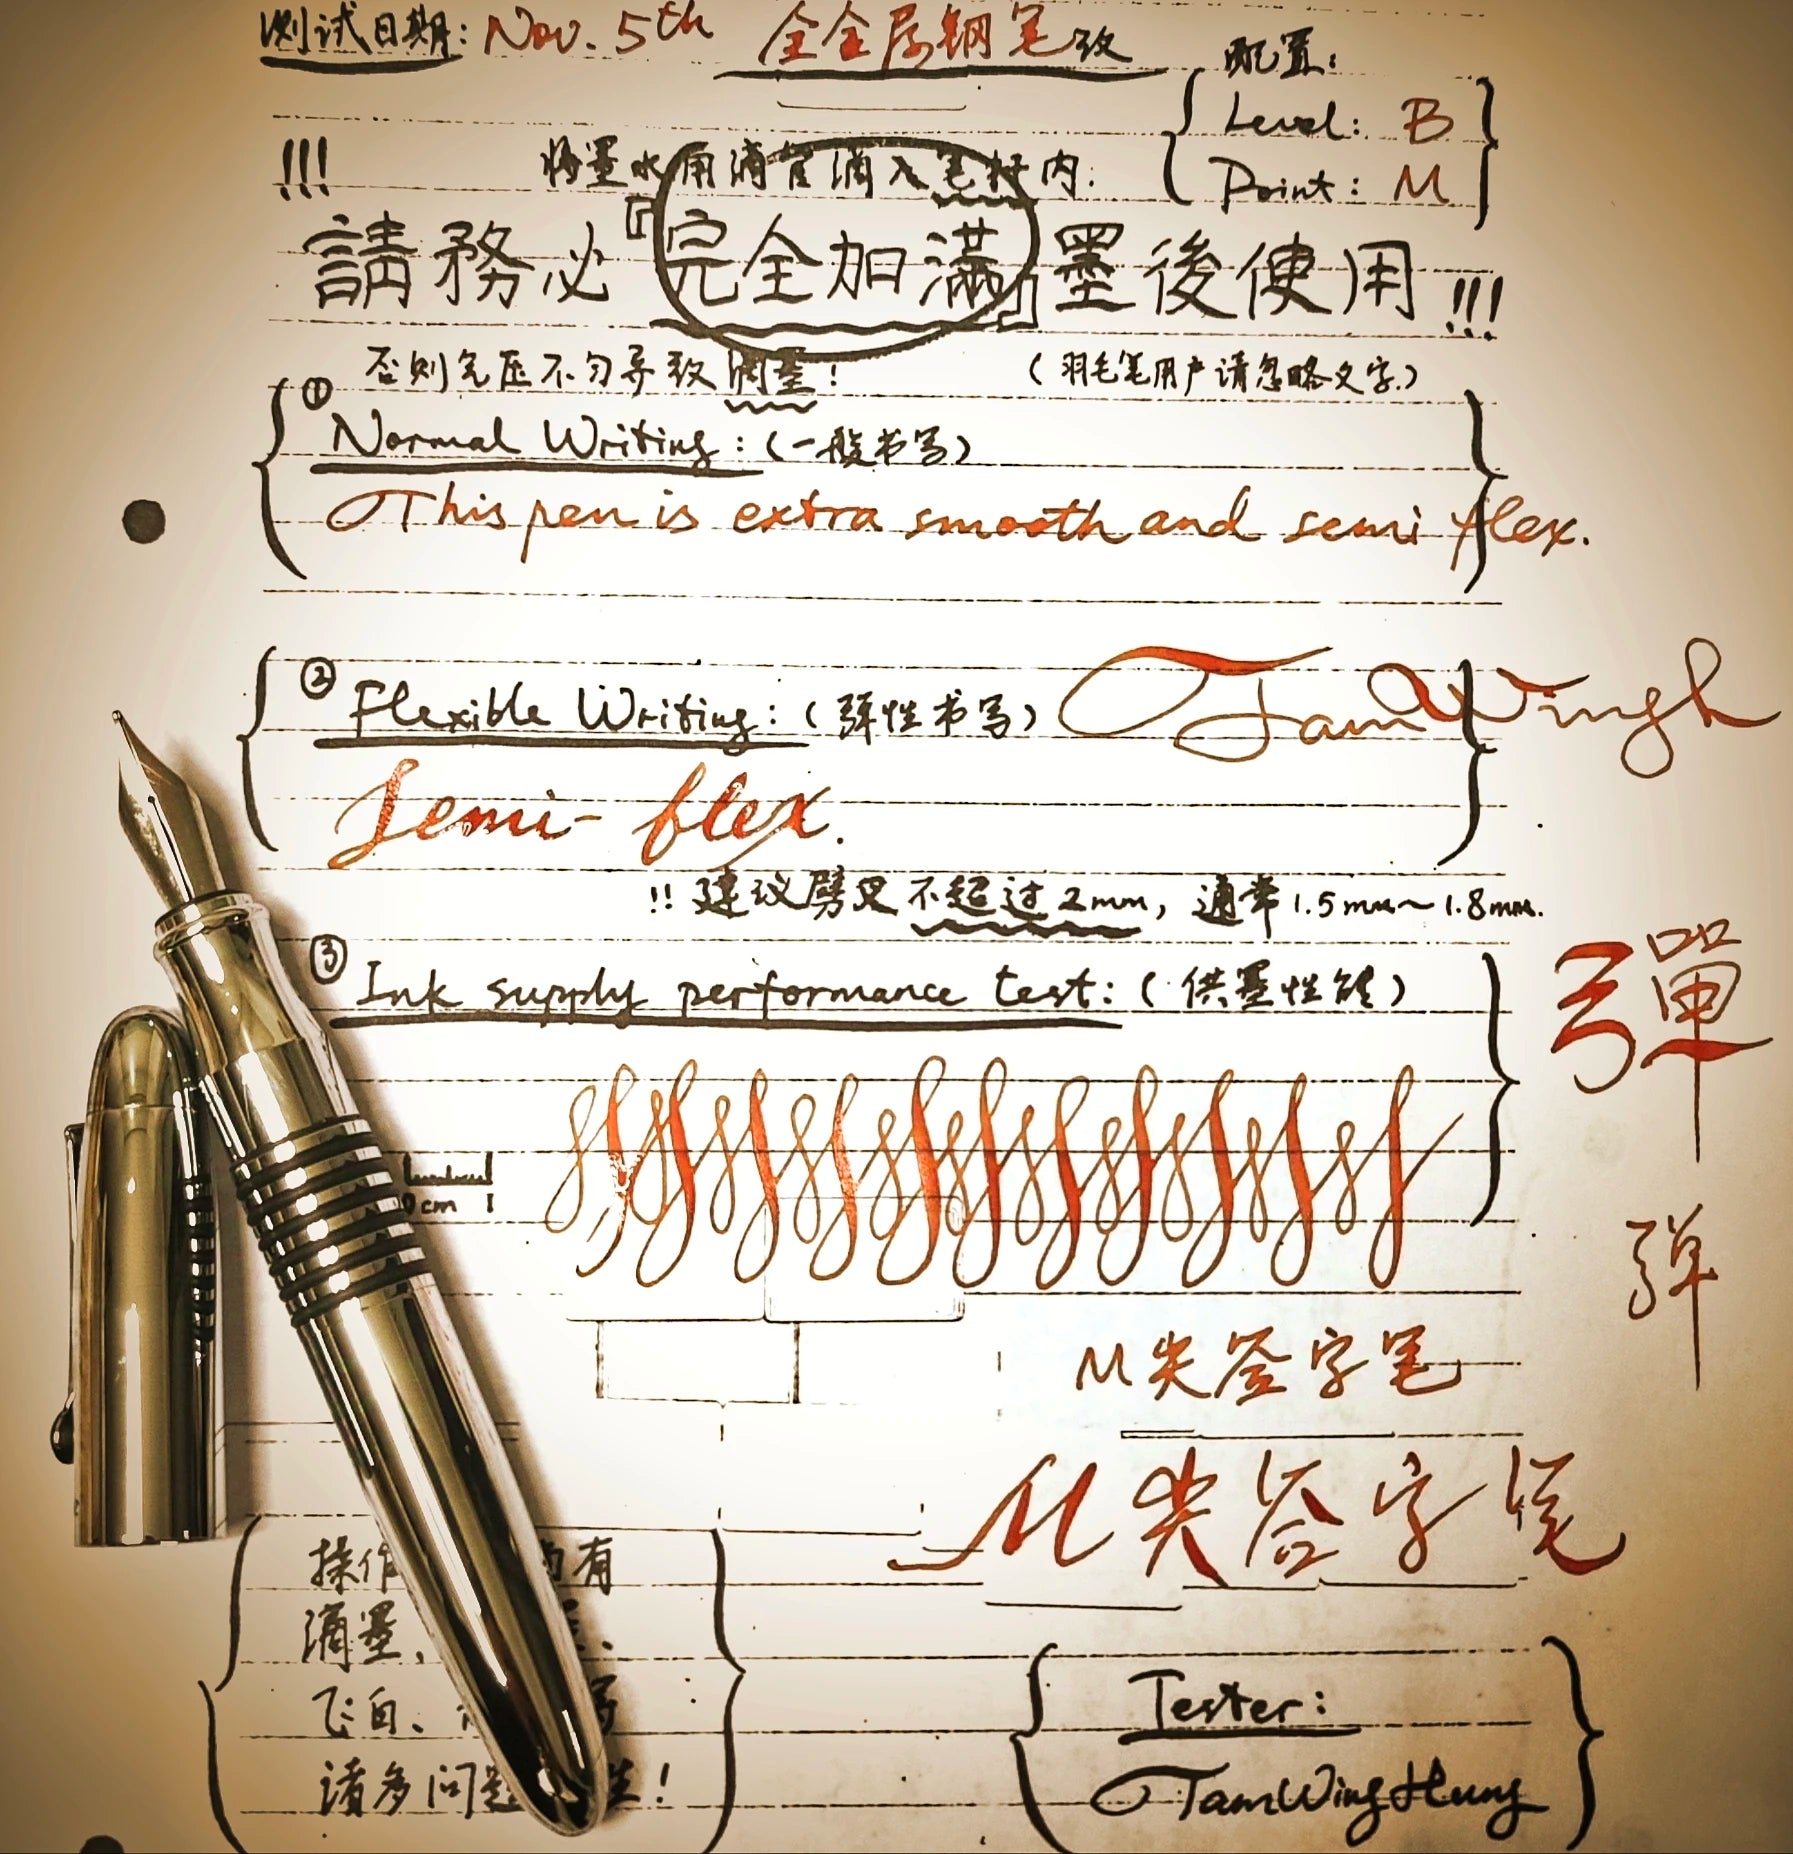 测试日期: Nov. 5th 全金属钢笔改
配置:
Level: B
Point: M
!!! 将墨水用滴管滴入笔杆内.
請務必『完全加滿』墨後使用!!!
否则气压不匀导致漏墨!
(羽毛笔用户请忽略文字.)
① Normal Writing: (一般书写)
This pen is extra smooth and semi flex.
② Flexible Writing: (弹性书写)
Tam Wingh
Semi-flex.
!! 建议劈叉不超过2mm, 通常1.5mm~1.8mm.
③ Ink supply performance test: (供墨性能)
彈
0cm 1
弹
M尖签字笔
M尖签字笔
操作 有
滴墨、
飞白、
诸多问题 生!
Tester:
TamWingHung